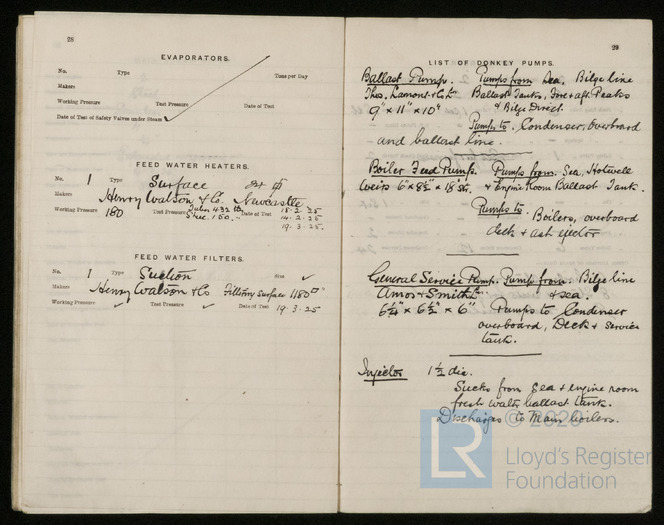 28
EVAPORATORS.
No. Type Tons per Day
Makers
Working Pressure Test Pressure Date of Test
Date of Test of Safety Valves under Steam
FEED WATER HEATERS.
No. 1 Type Surface
Makers Henry Watson & Co. Newcastle
Working Pressure 180 Test Pressure Tubes 432 lb Date of Test 18.2.25
Shell 150. 14.2.25
19.3.25.
FEED WATER FILTERS.
No. 1 Type Suction Size ✓
Makers Henry Watson & Co Filtering Surface 1180 □"
Working Pressure ✓ Test Pressure ✓ Date of Test 19.3.25
29
LIST OF DONKEY PUMPS.
Ballast Pump. Pumps from Sea, Bilge line
Thos. Lamont & Co. Ld Ballast Tanks, Fore & aft Peaks
9" x 11" x 10" & Bilge Direct.
Pumps to. Condenser, overboard
and ballast line.
Boiler Feed Pump. Pumps from. Sea, Hotwell
Weirs 6" x 8½" x 18" st. & Engine Room Ballast Tank.
Pumps to. Boilers, overboard
deck & ash ejector
General Service Pump. Pump from. Bilge line
Amos & Smith Ld & sea.
6¼" x 6½" x 6" Pumps to Condenser
overboard, Deck & service
tank.
Injector 1½ dia.
Sucks from Sea & engine room
fresh water ballast tank.
Discharges to Main boilers.
LR
© 2020
Lloyd's Register
Foundation